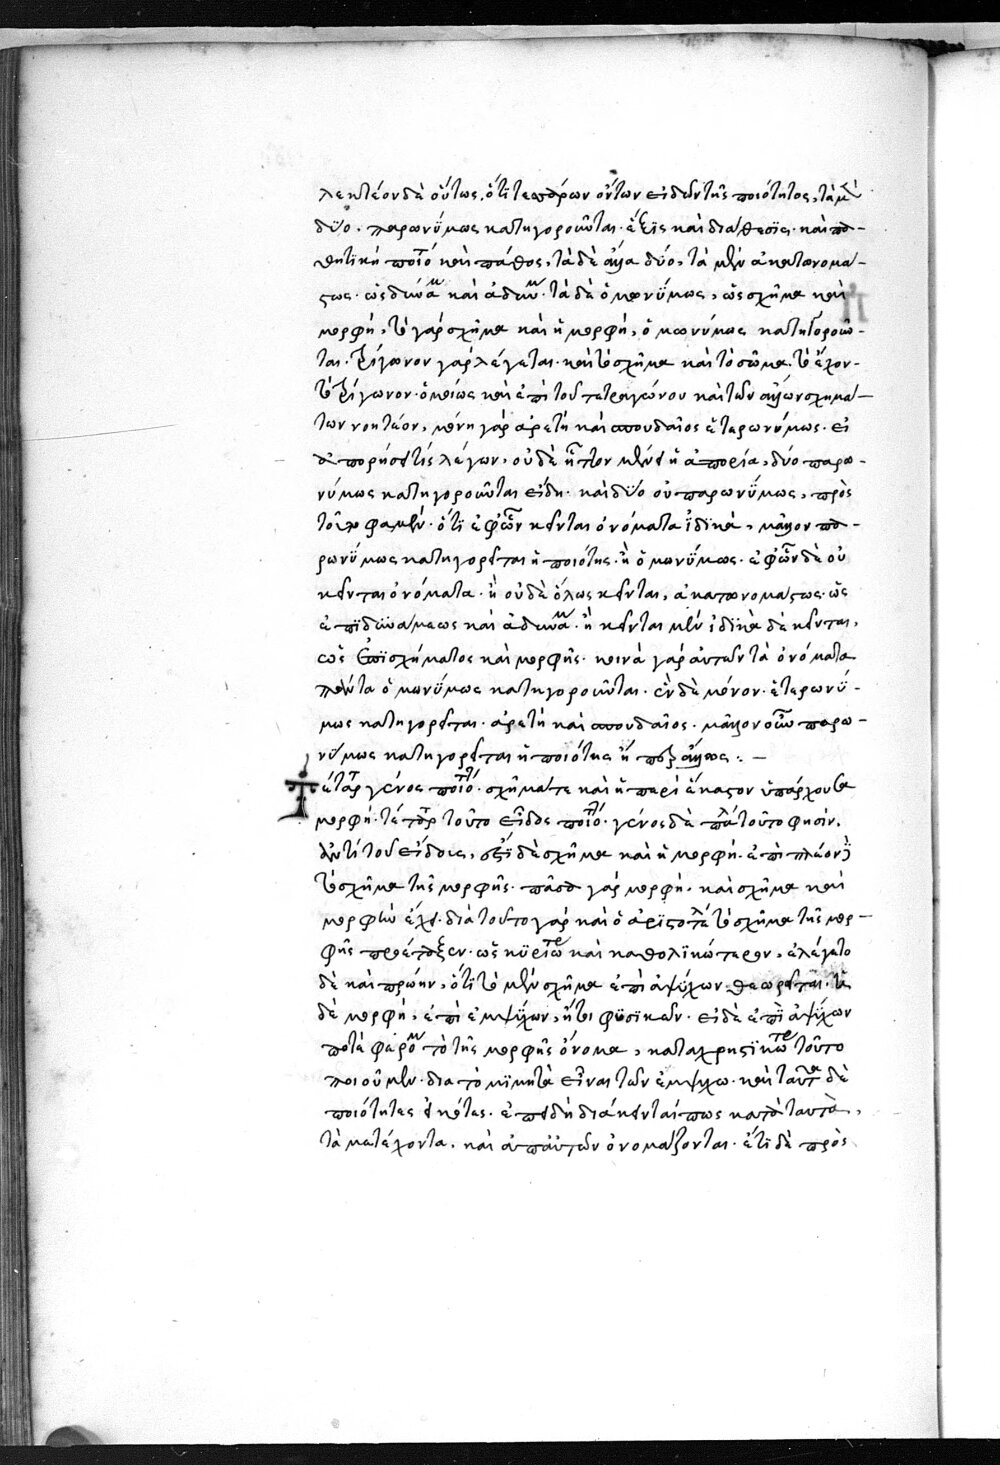 λεκτέον δὲ οὕτως. ὅτι τεσσάρων ὄντων εἰδῶν τῆς ποιότητος, τὰ μὲν
δύο. παρωνύμως κατηγοροῦνται. ἕξις καὶ διάθεσις. καὶ πα-
θητικὴ ποιότης καὶ πάθος, τὰ δὲ ἄλλα δύο, τὰ μὲν ἀκατονομά-
στως. ὡς δύναμις καὶ ἀδυναμία. τὰ δὲ ὁμωνύμως, ὡς σχῆμα καὶ
μορφή, τὸ γὰρ σχῆμα καὶ ἡ μορφή, ὁμωνύμως κατηγοροῦν-
ται. τρίγωνον γὰρ λέγεται. καὶ τὸ σχῆμα καὶ τὸ σῶμα. τὸ ἔχον
τὸ τρίγωνον. ὁμοίως καὶ ἐπὶ τοῦ τετραγώνου καὶ τῶν ἄλλων σχημά-
των νοητέον, μόνη γὰρ ἀρετὴ καὶ σπουδαῖος ἑτερωνύμως. εἰ
δ' ἀπορήσει τις λέγων, οὐδὲ ἧττον μένει ἡ ἀπορία, δύο παρω-
νύμως κατηγοροῦνται εἴδη. καὶ δύο οὐ παρωνύμως, πρὸς
τοῦτο φαμέν. ὅτι ἐφ' ὧν κεῖνται ὀνόματα ἰδικά, μᾶλλον πα-
ρωνύμως κατηγορεῖται ἡ ποιότης. ἢ ὁμωνύμως. ἐφ' ὧν δὲ οὐ
κεῖνται ὀνόματα. ἢ οὐδὲ ὅλως κεῖνται, ἀκατονομάστως. ὡς
ἐπὶ δυνάμεως καὶ ἀδυναμίας. ἢ κεῖνται μὲν ἰδικὰ δὲ κεῖνται,
ὡς ἐπὶ σχήματος καὶ μορφῆς. κοινὰ γὰρ αὐτῶν τὰ ὀνόματα
πάντα ὁμωνύμως κατηγοροῦνται. ἓν δὲ μόνον. ἑτερωνύ-
μως κατηγορεῖται. ἀρετὴ καὶ σπουδαῖος. μᾶλλον οὖν παρω-
νύμως κατηγορεῖται ἡ ποιότης ἤπερ ἄλλως : –
Τέταρτον γένος ποιότητος. σχῆμά τε καὶ ἡ περὶ ἕκαστον ὑπάρχουσα
μορφή. τέταρτον τοῦτο εἶδος ποιότητος. γένος δὲ πάλιν τοῦτο φησὶν.
ἀντὶ τοῦ εἶδος, ἐστὶ δὲ σχῆμα καὶ ἡ μορφή. ἐπὶ πλέον
τὸ σχῆμα τῆς μορφῆς. πᾶσα γὰρ μορφή. καὶ σχῆμα καὶ
μορφὴν ἔχει. διὰ τοῦτο γὰρ καὶ ὁ ἀριστοτέλης τὸ σχῆμα τῆς μορ-
φῆς προέταξεν. ὡς κυριώτερον καὶ καθολικώτερον, ἐλέγετο
δὲ καὶ πρώην, ὅτι τὸ μὲν σχῆμα ἐπὶ ἀψύχων θεωρεῖται. ἡ
δὲ μορφή, ἐπὶ ἐμψύχων, ἤτοι φυσικῶν. εἰ δὲ ἐπὶ ἀψύχων
ποτὲ φέρομεν τὸ τῆς μορφῆς ὄνομα, καταχρηστικώτερον τοῦτο
ποιοῦμεν. διὰ τὸ μιμητὰ εἶναι τῶν ἐμψύχων. καὶ ταῦτα δὲ
ποιότητες εἰκότως. ἐπειδὴ διάκεινταί πως κατὰ ταύτας,
τὰ μετέχοντα. καὶ ἀπ' αὐτῶν ὀνομάζονται. ἔτι δὲ πρὸς